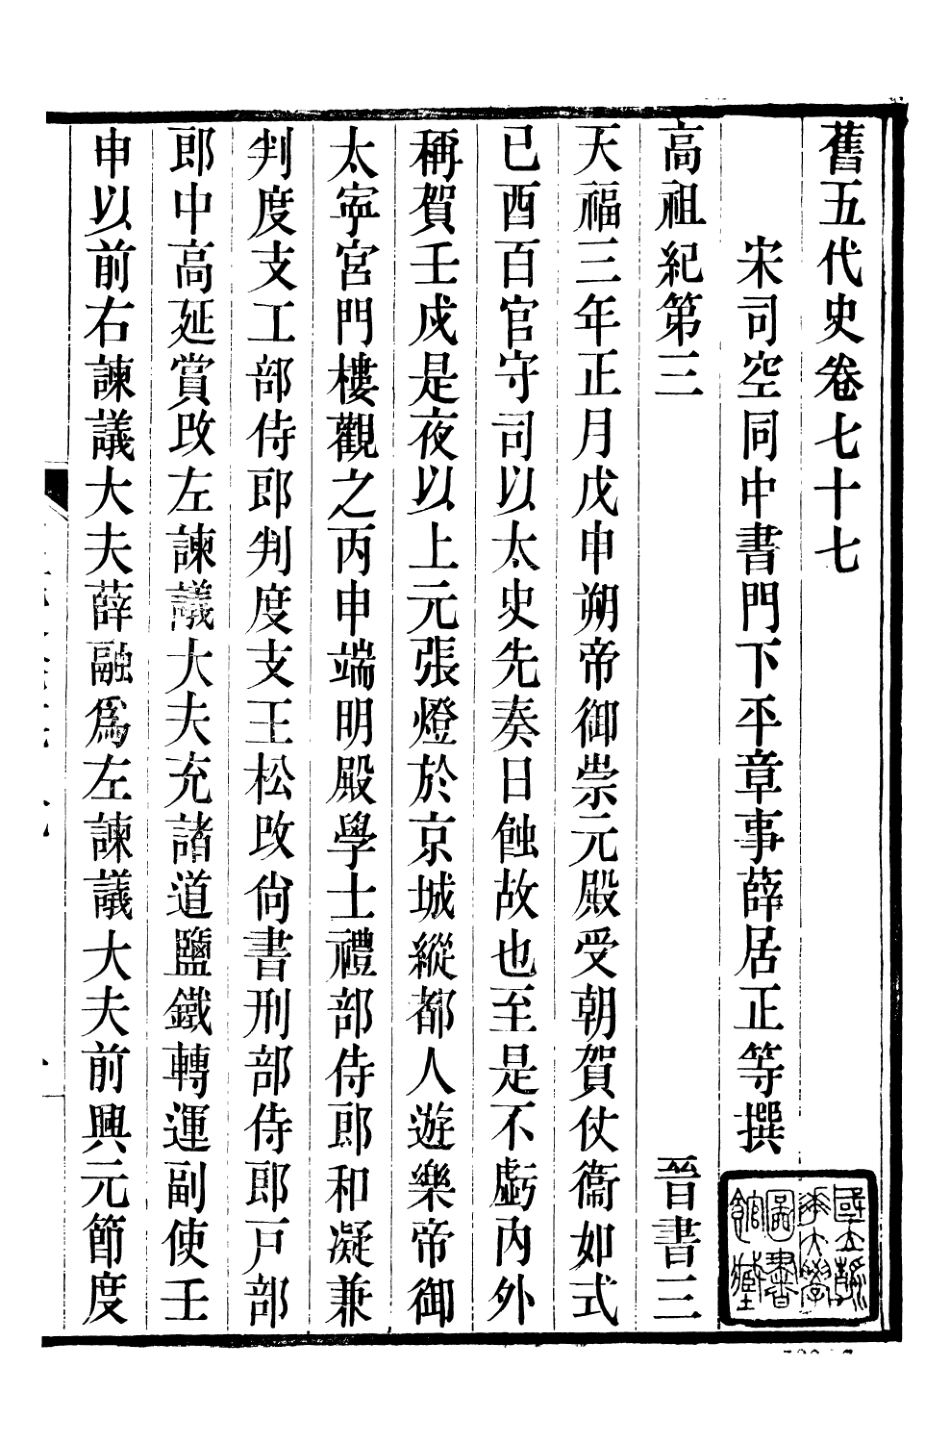 舊五代史卷七十七
宋司空同中書門下平章事薛居正等撰
高祖紀第三　晉書三
天福三年正月戊申朔帝御崇元殿受朝賀仗衞如式
已酉百官守司以太史先奏日蝕故也至是不虧內外
稱賀壬戍是夜以上元張燈於京城縱都人遊樂帝御
太寧宮門樓觀之丙申端明殿學士禮部侍郎和凝兼
判度支工部侍郎判度支王松改尙書刑部侍郎戶部
郎中高延賞改左諫議大夫充諸道鹽鐵轉運副使壬
申以前右諫議大夫薛融爲左諫議大夫前興元節度
國立清華大學圖書館藏